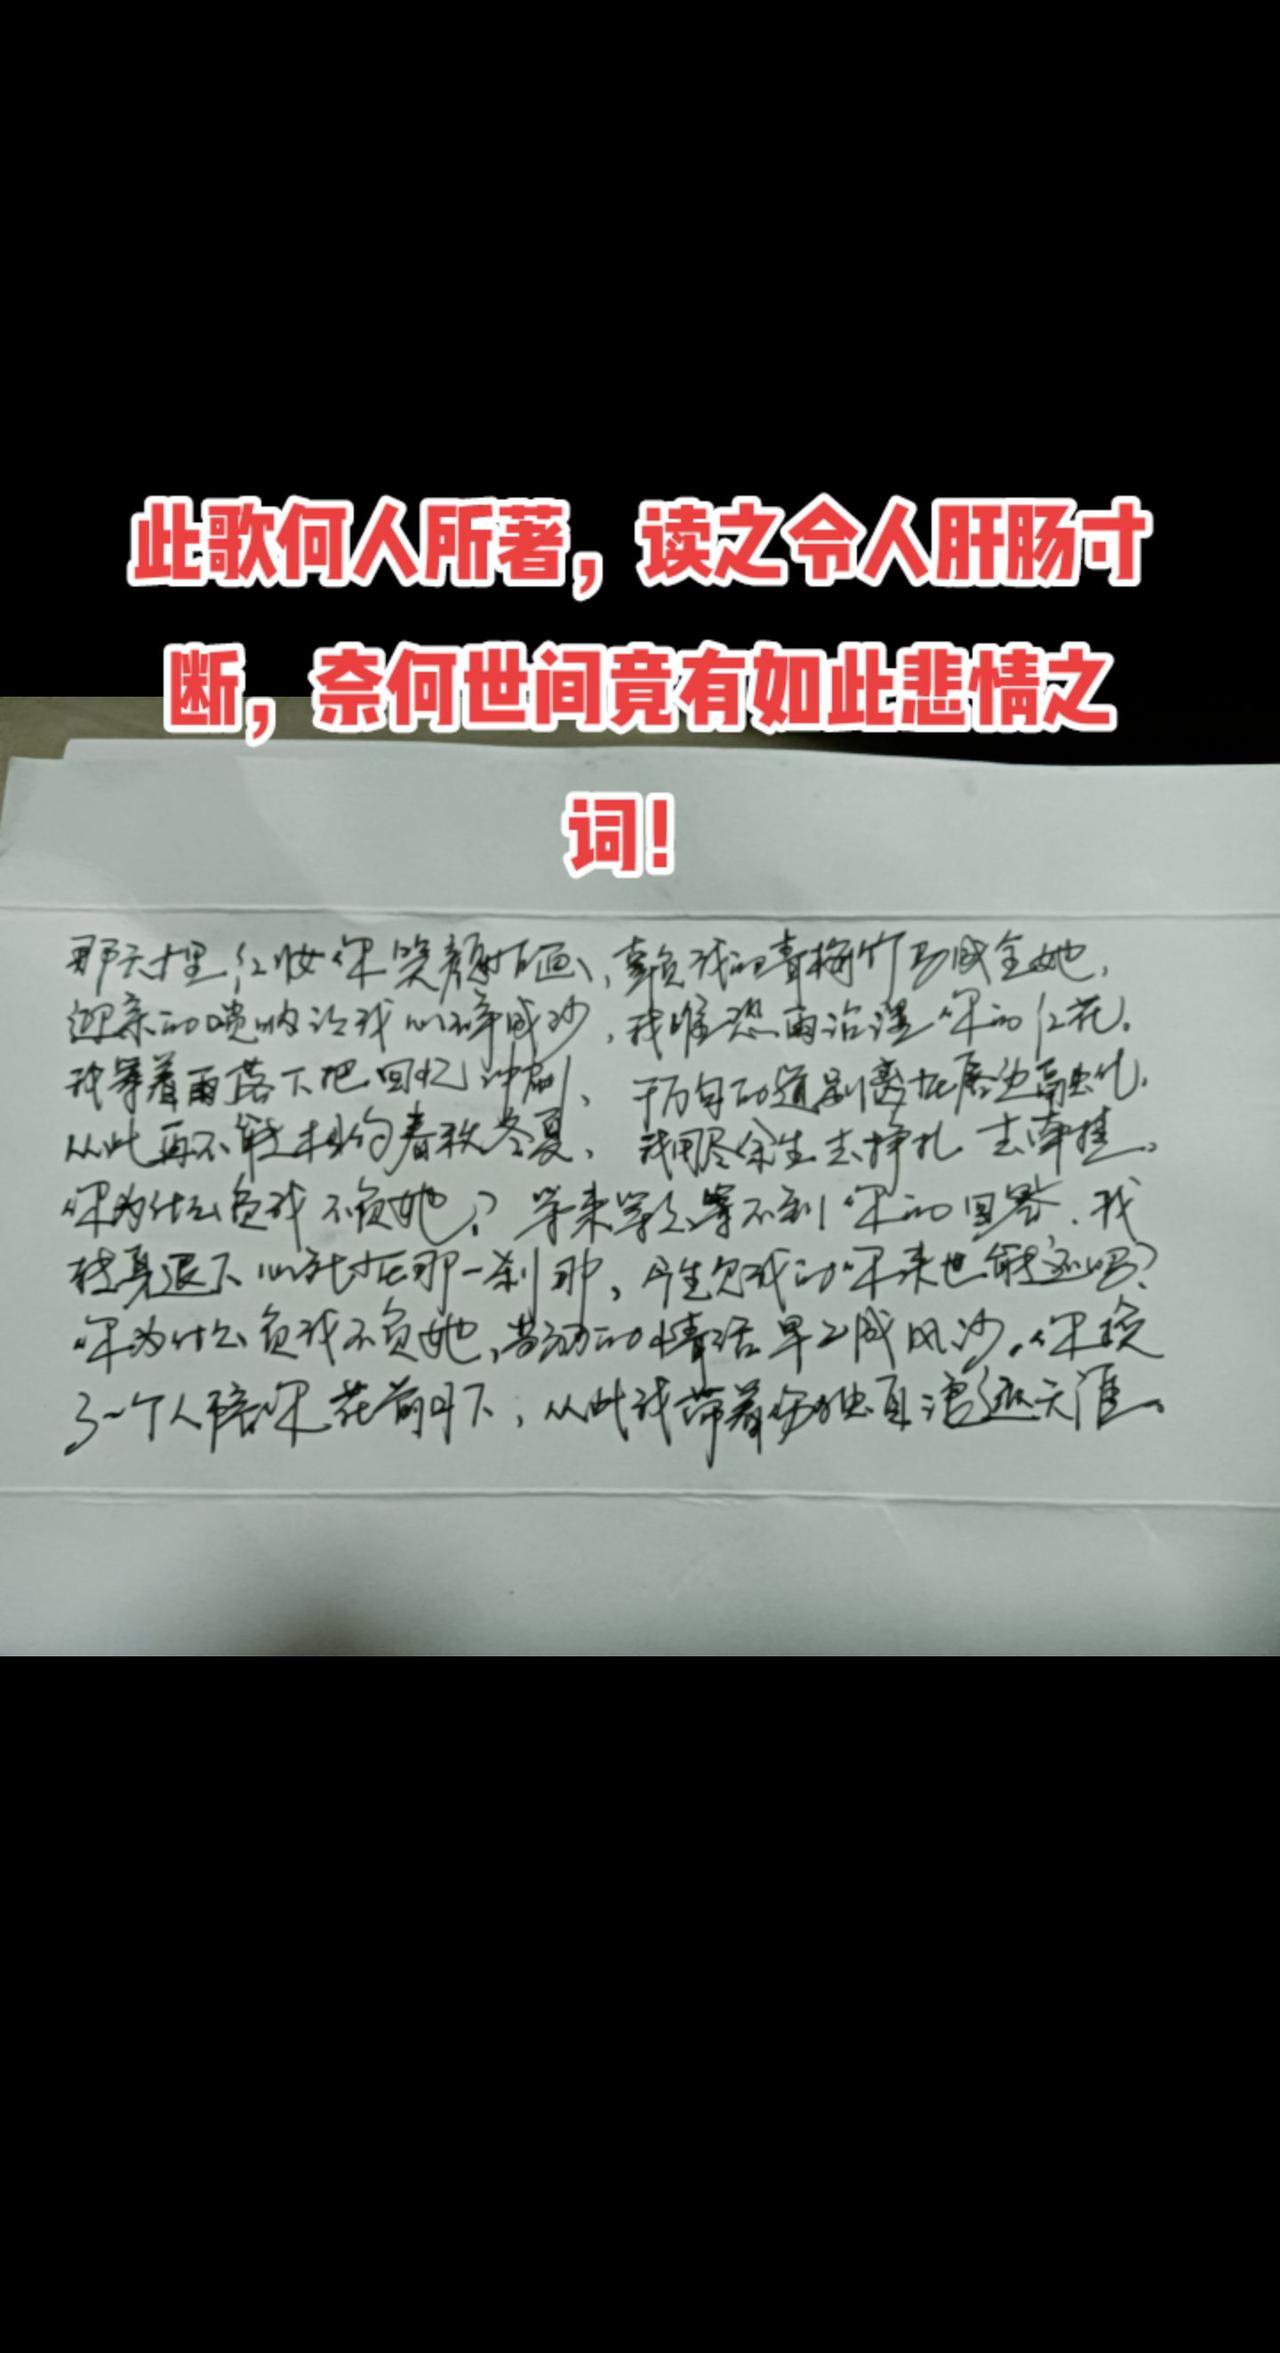 此歌何人所著，读之令人肝肠寸
断，奈何世间竟有如此悲情之
词！
那天十里红妆你笑颜如画，辜负我的青梅竹马成全她，
迎亲的唢呐让我心碎成沙，我唯恐雨沾湿你的红花。
我等着雨落下把回忆冲刷、千万句的道别离在唇边融化，
从此再不能相约春秋冬夏、我用尽余生去挣扎 去牵挂。
你为什么负我不负她？等来等去等不到你的回答，我
转身退下心死在那一刹那，今生欠我的你来世能还吗？
你为什么负我不负她，的情话早已成风沙。你换
了一个人陪你花前月下，从此我带着伤独自浪迹天涯。